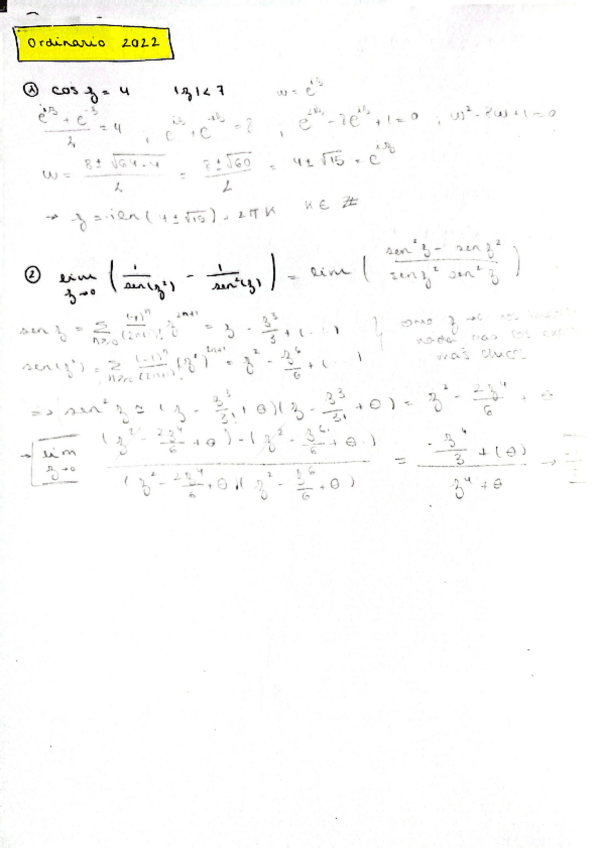 Ordinario 2022
① cos z = 4 |z| < 7 w = e^{iz}
\frac{e^{iz} + e^{-iz}}{2} = 4 ; e^{iz} + e^{-iz} = 8 ; e^{2iz} - 8e^{iz} + 1 = 0 ; w² - 8w + 1 = 0
w = \frac{8 ± √(64-4)}{2} = \frac{8 ± √60}{2} = 4 ± √15 = e^{iz}
→ z = -i ln(4 ± √15) + 2πK K ∈ Z
② lim_{z→0} ( \frac{1}{sen(z²)} - \frac{1}{sen²(z)} ) = lim ( \frac{sen² z - sen z²}{sen z² sen² z} )
sen z = ∑_{n≥0} \frac{(-1)^n}{(2n+1)!} z^{2n+1} = z - \frac{z³}{3!} + (...) z→0
sen(z²) = ∑_{n≥0} \frac{(-1)^n}{(2n+1)!} (z²)^{2n+1} = z² - \frac{z^6}{6} + (...) mas
⇒ sen² z = (z - \frac{z³}{3!} + θ)(z - \frac{z³}{3!} + θ) = z² - \frac{2z⁴}{6} + θ
→ lim_{z→0} \frac{(z² - \frac{2z⁴}{6} + θ) - (z² - \frac{z^6}{6} + θ)}{(z² - \frac{2z⁴}{6} + θ)(z² - \frac{z^6}{6} + θ)} = \frac{-\frac{z⁴}{3} + (θ)}{z⁴ + θ} →